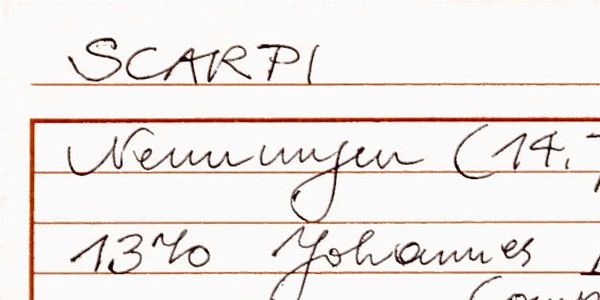 SCARPI
Nenningen (14.
1370 Johannes